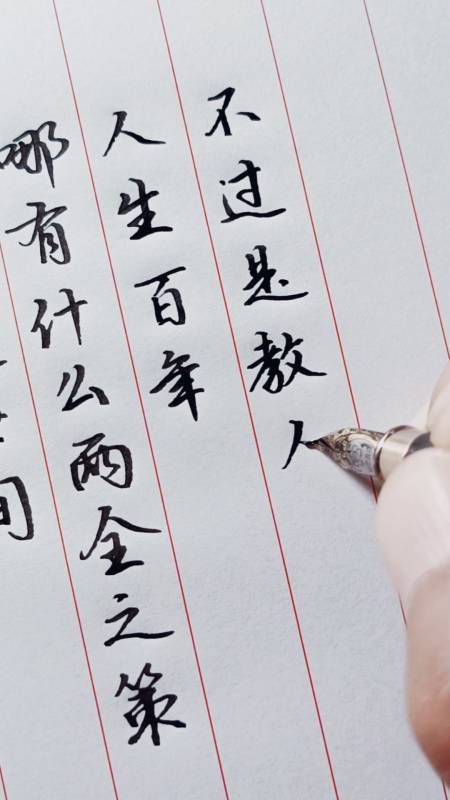 间
哪有什么两全之策
人生百年
不过是教人